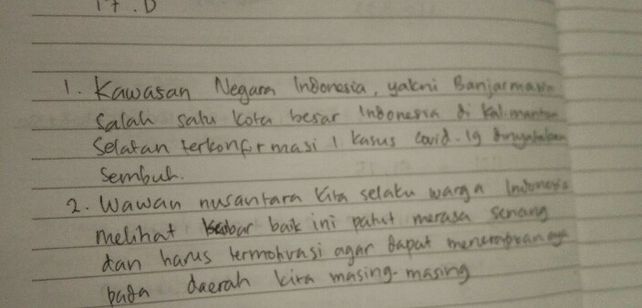 17. D
1. Kawasan Negara Indonesia, yakni Banjarmasin
Salah satu kota besar Indonesia di Kalimantan
Selatan terkonfirmasi 1 kasus Covid-19 dinyatakan
Sembuh.
2. Wawan nusantara kita selaku warga Indonesia
melihat kabar baik ini patut merasa senang
dan harus termotivasi agar dapat
pada daerah kita masing-masing